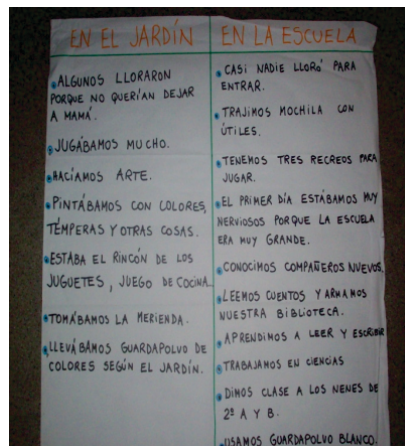 EN EL JARDÍN
• ALGUNOS LLORARON
PORQUE NO QUERÍAN DEJAR
A MAMÁ.
• JUGÁBAMOS MUCHO.
• HACÍAMOS ARTE.
• PINTÁBAMOS CON COLORES,
TÉMPERAS Y OTRAS COSAS.
• ESTABA EL RINCÓN DE LOS
JUGUETES, JUEGO DE COCINA...
• TOMÁBAMOS LA MERIENDA.
• LLEVÁBAMOS GUARDAPOLVO DE
COLORES SEGÚN EL JARDÍN.
EN LA ESCUELA
• CASI NADIE LLORÓ PARA
ENTRAR.
• TRAJIMOS MOCHILA CON
ÚTILES.
• TENEMOS TRES RECREOS PARA
JUGAR.
• EL PRIMER DÍA ESTÁBAMOS MUY
NERVIOSOS PORQUE LA ESCUELA
ERA MUY GRANDE.
• CONOCIMOS COMPAÑEROS NUEVOS.
• LEEMOS CUENTOS Y ARMAMOS
NUESTRA BIBLIOTECA.
• APRENDIMOS A LEER Y ESCRIBIR
• TRABAJAMOS EN CIENCIAS
• DIMOS CLASE A LOS NENES DE
2º A Y B.
• USAMOS GUARDAPOLVO BLANCO.